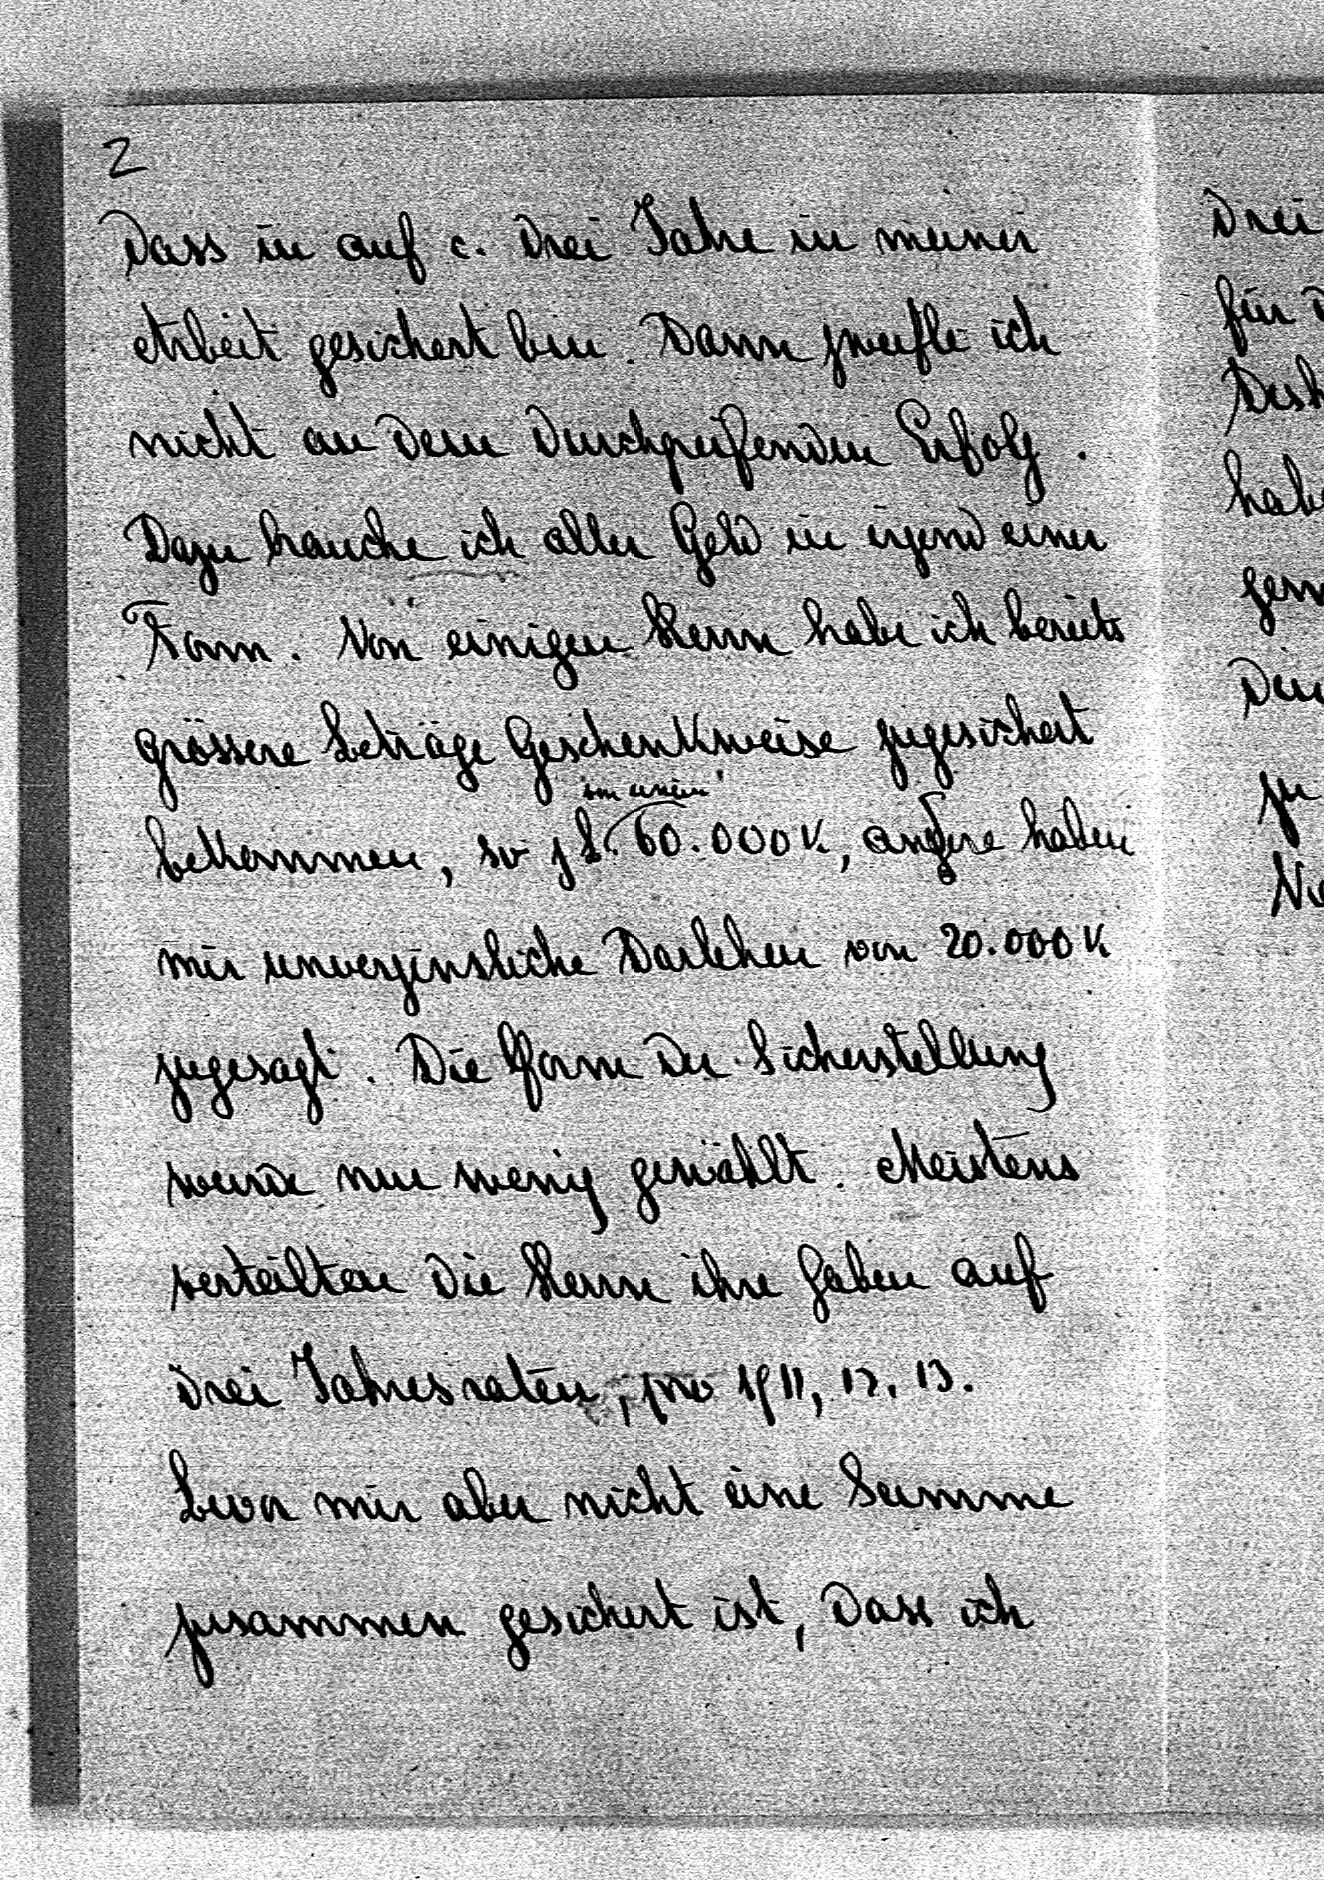 2
dass in auf c. drei Jahre in meiner
Arbeit gesichert bin. Dann zweifle ich
nicht an dem durchgreifenden Erfolg.
Dazu brauche ich aller Geld in irgend einer
Form. Von einigen Herrn habe ich bereits
grössere Beträge Geschenkweise zugesichert
von einem
bekommen, so z B. 60.000 K, andere haben
mir unverzinsliche Darlehen von 20.000 K
zugesagt. Die Form der Sicherstellung
wurde nur wenig gewählt. Meistens
verteilten die Herrn ihre Gaben auf
drei Jahresraten, pro 1911, 12, 13.
Bevor mir aber nicht eine Summe
zusammen gesichert ist, dass ich
drei
für
hab